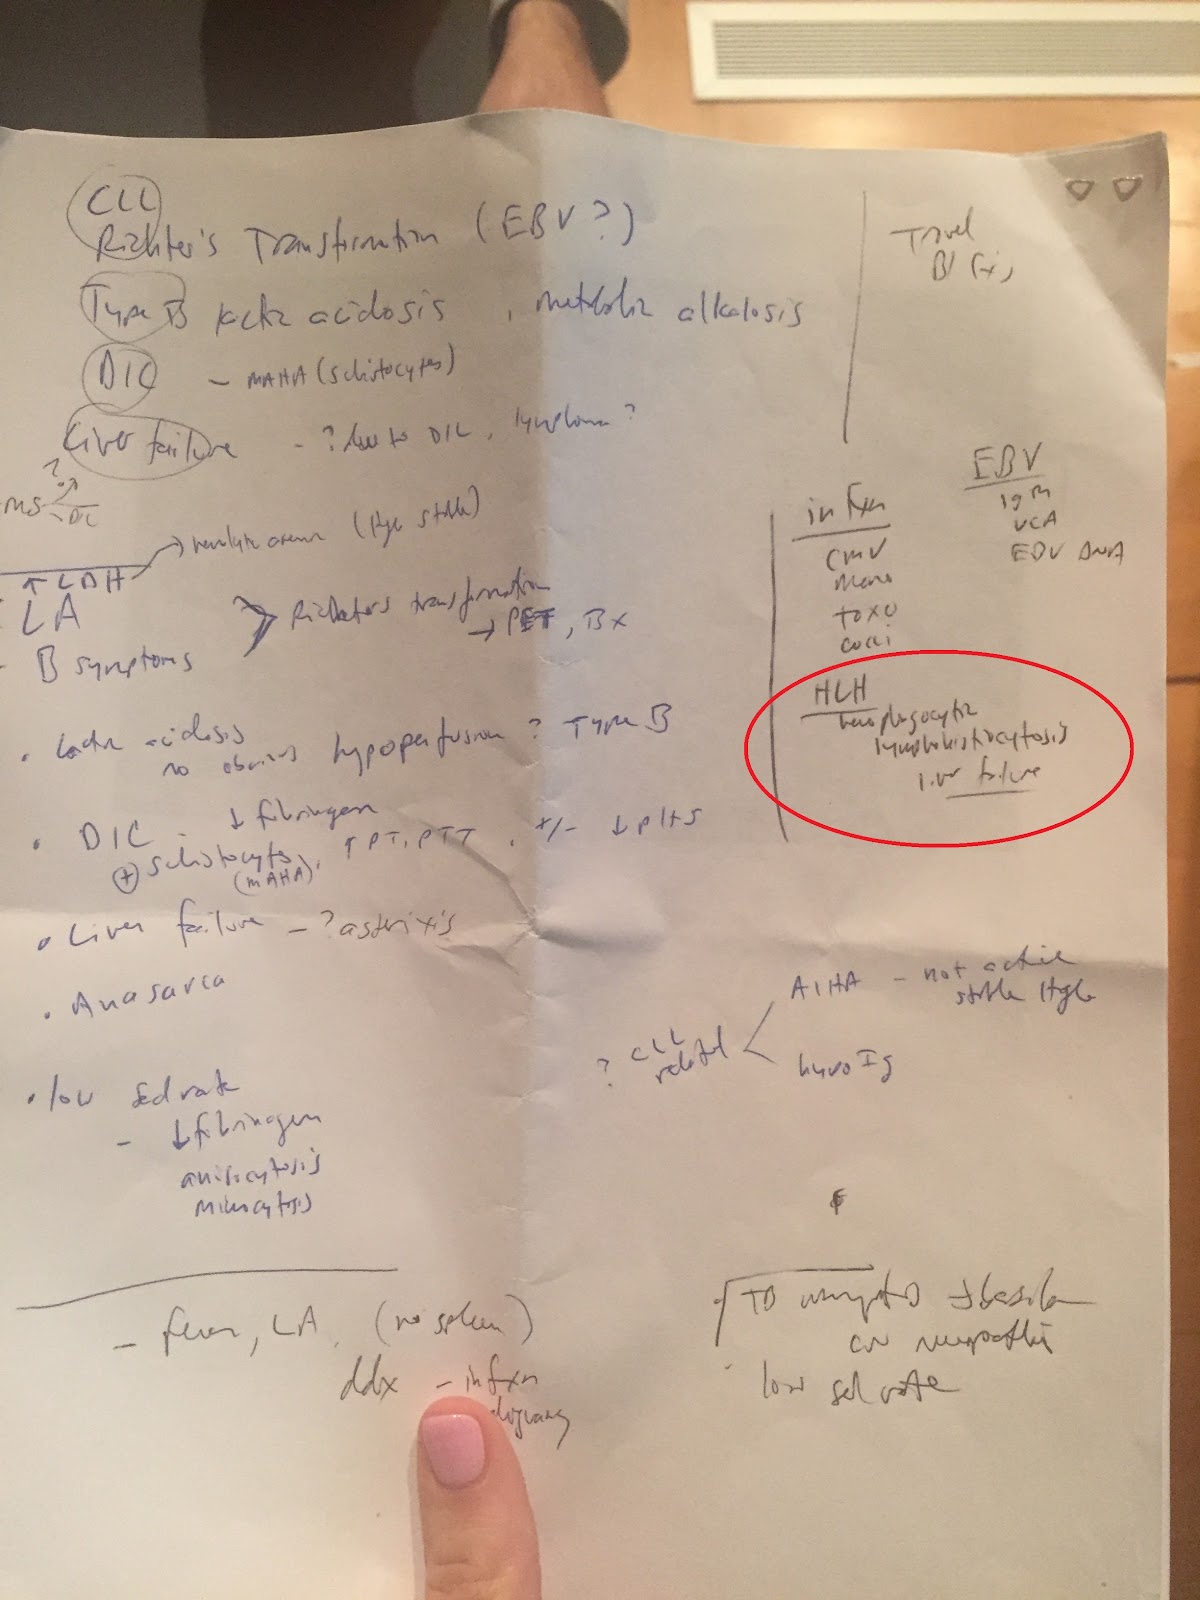 CLL
Richter's Transformation (EBV?)
Type B lactic acidosis, metabolic alkalosis
DIC - MAHA (schistocytes)
Liver failure - ? due to DIC, lymphoma?
MS ?
DIC
↑LDH → hemolytic anemia (Hgb stable)
LA
- B symptoms
Richter's transformation
→ PET, Bx
• Lactic acidosis
no obvious hypoperfusion ? Type B
• DIC - ↓ fibrinogen
+ schistocytes, ↑PT, PTT, +/- ↓plts
(MAHA)
• Liver failure - ? asterixis
• Anasarca
• low sed rate
- ↓fibrinogen
anisocytosis
microcytosis
- fever, LA, (no spleen)
ddx - infxn
Travel
infxn
CMV
mono
toxo
cocci
EBV
IgM
VCA
EBV DNA
HLH
hemophagocytic
lymphohistiocytosis
liver failure
? CLL
related
AIHA - not active
stable Hgb
hypo Ig
TB
CN neuropathies
low sed rate